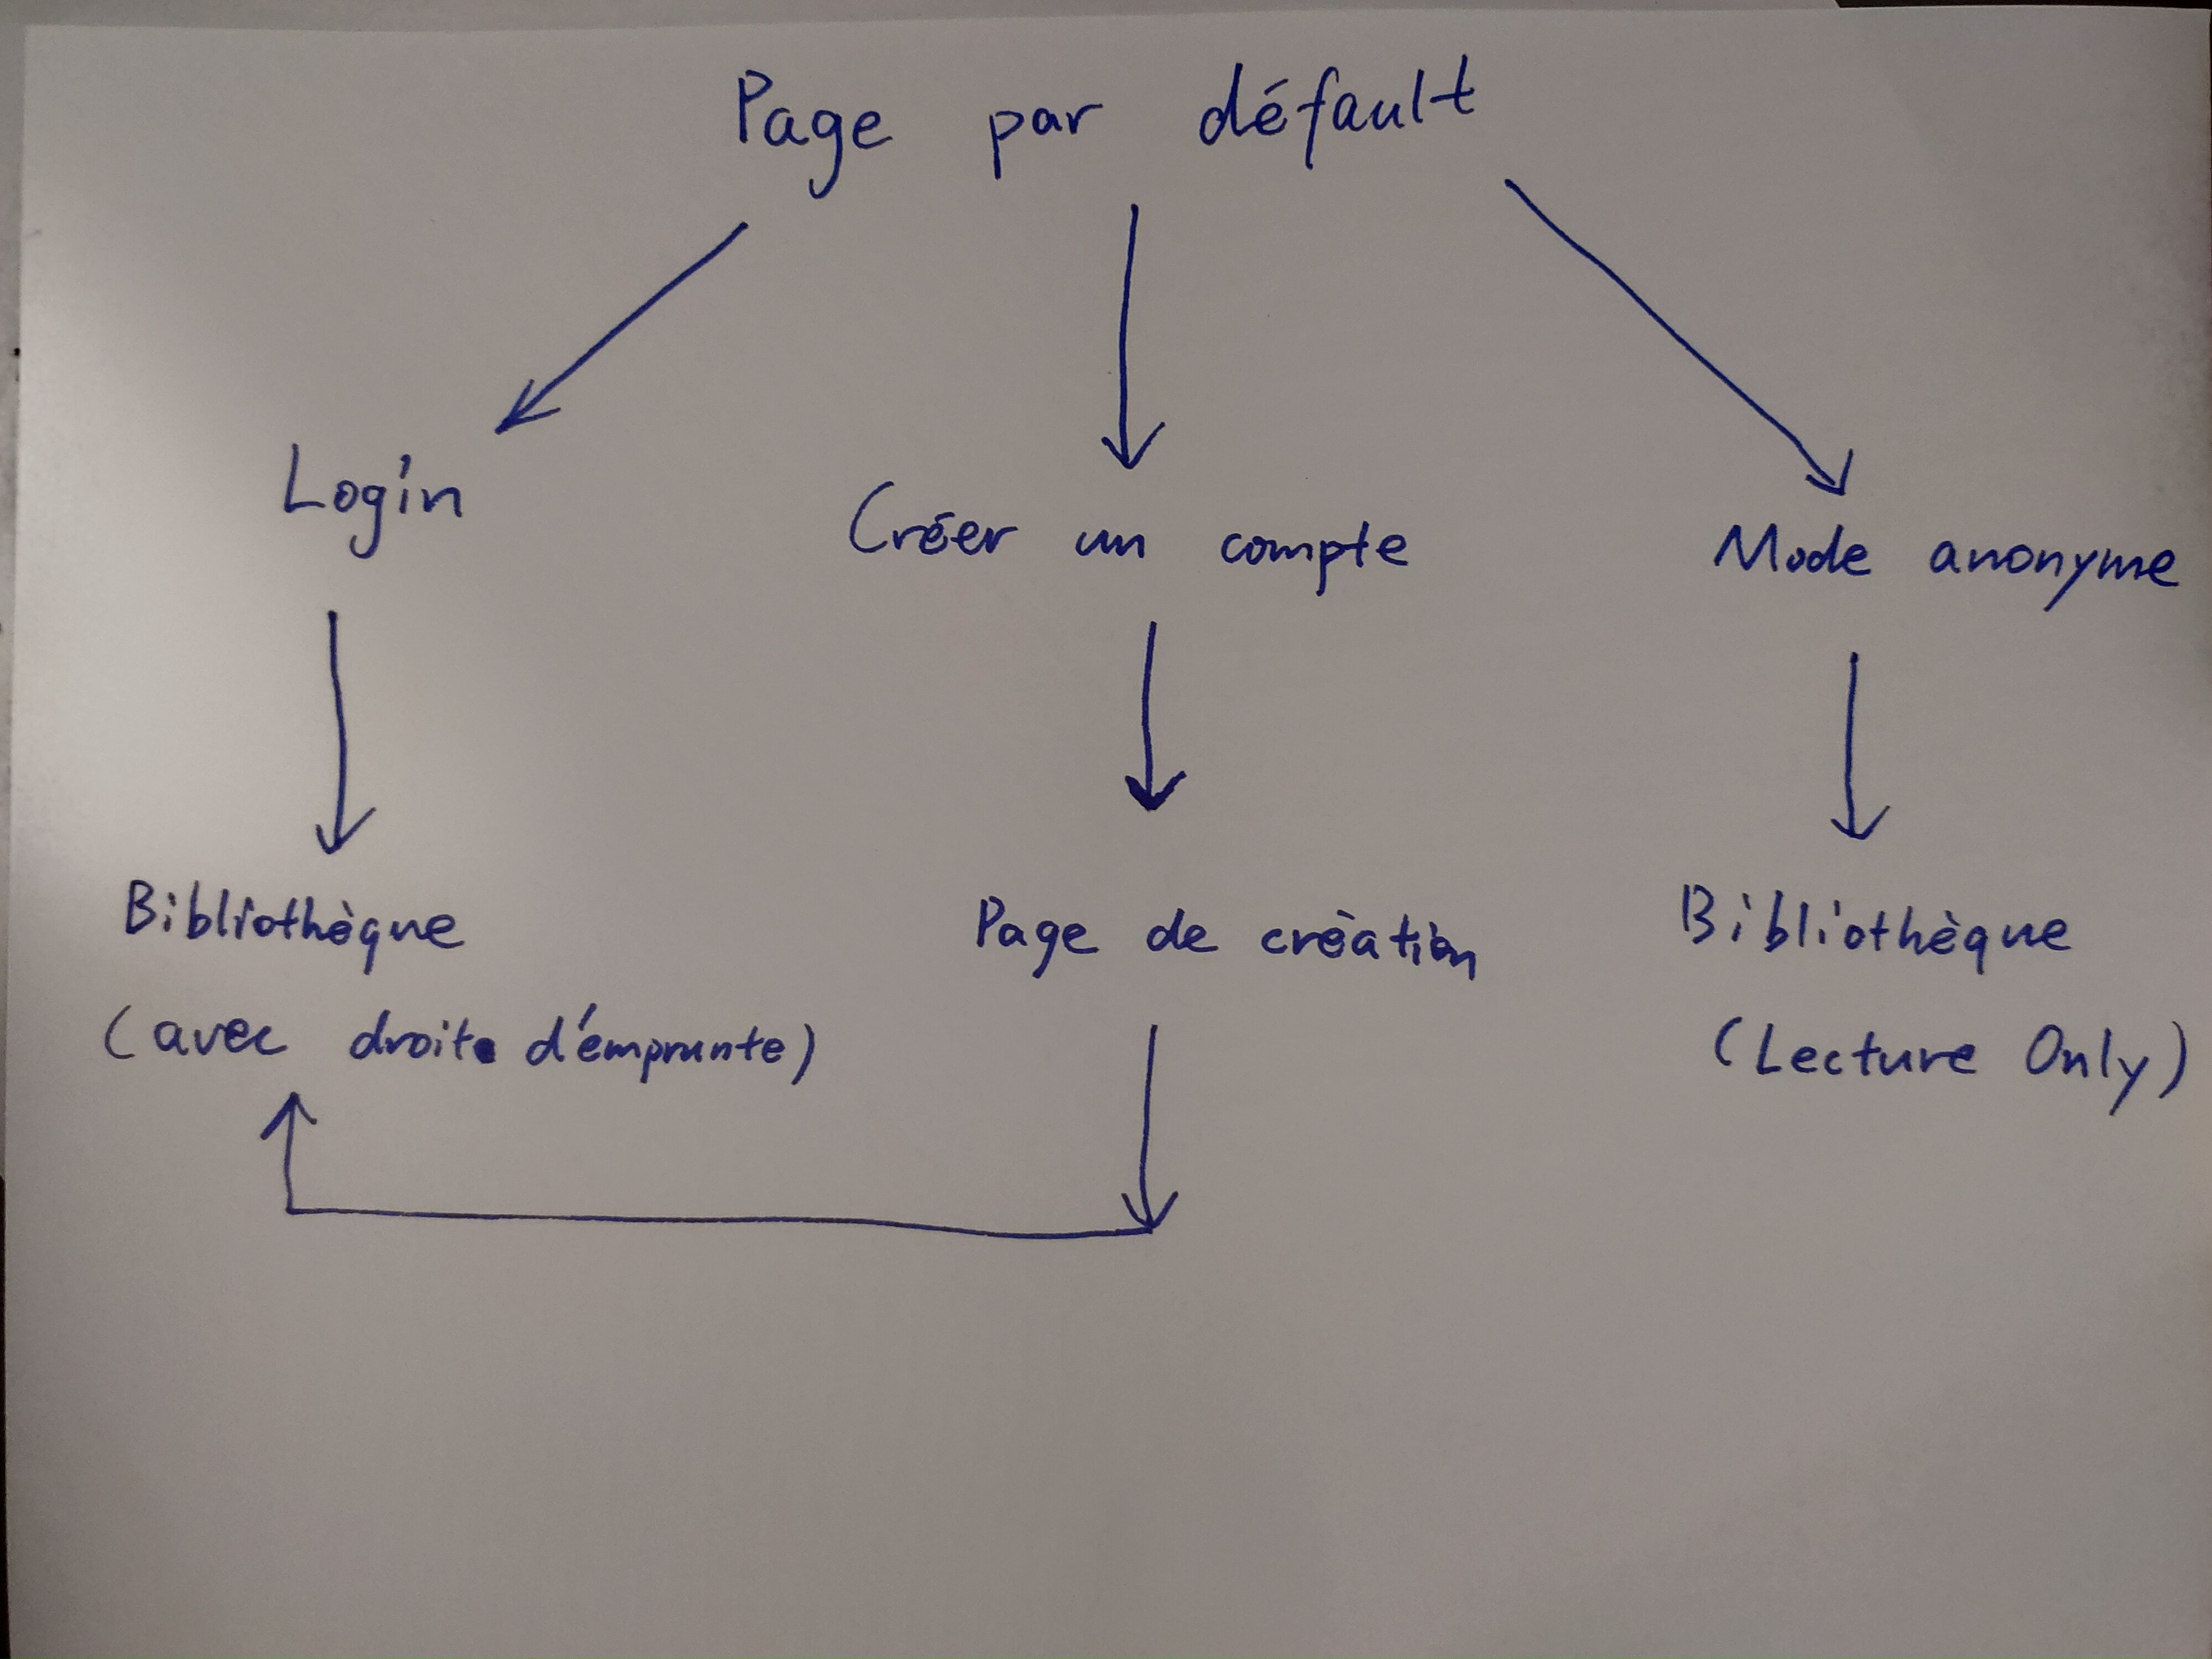 Page par défault
Login
Créer un compte
Mode anonyme
Bibliothèque
(avec droit d'émprunte)
Page de crèation
Bibliothèque
(Lecture Only)